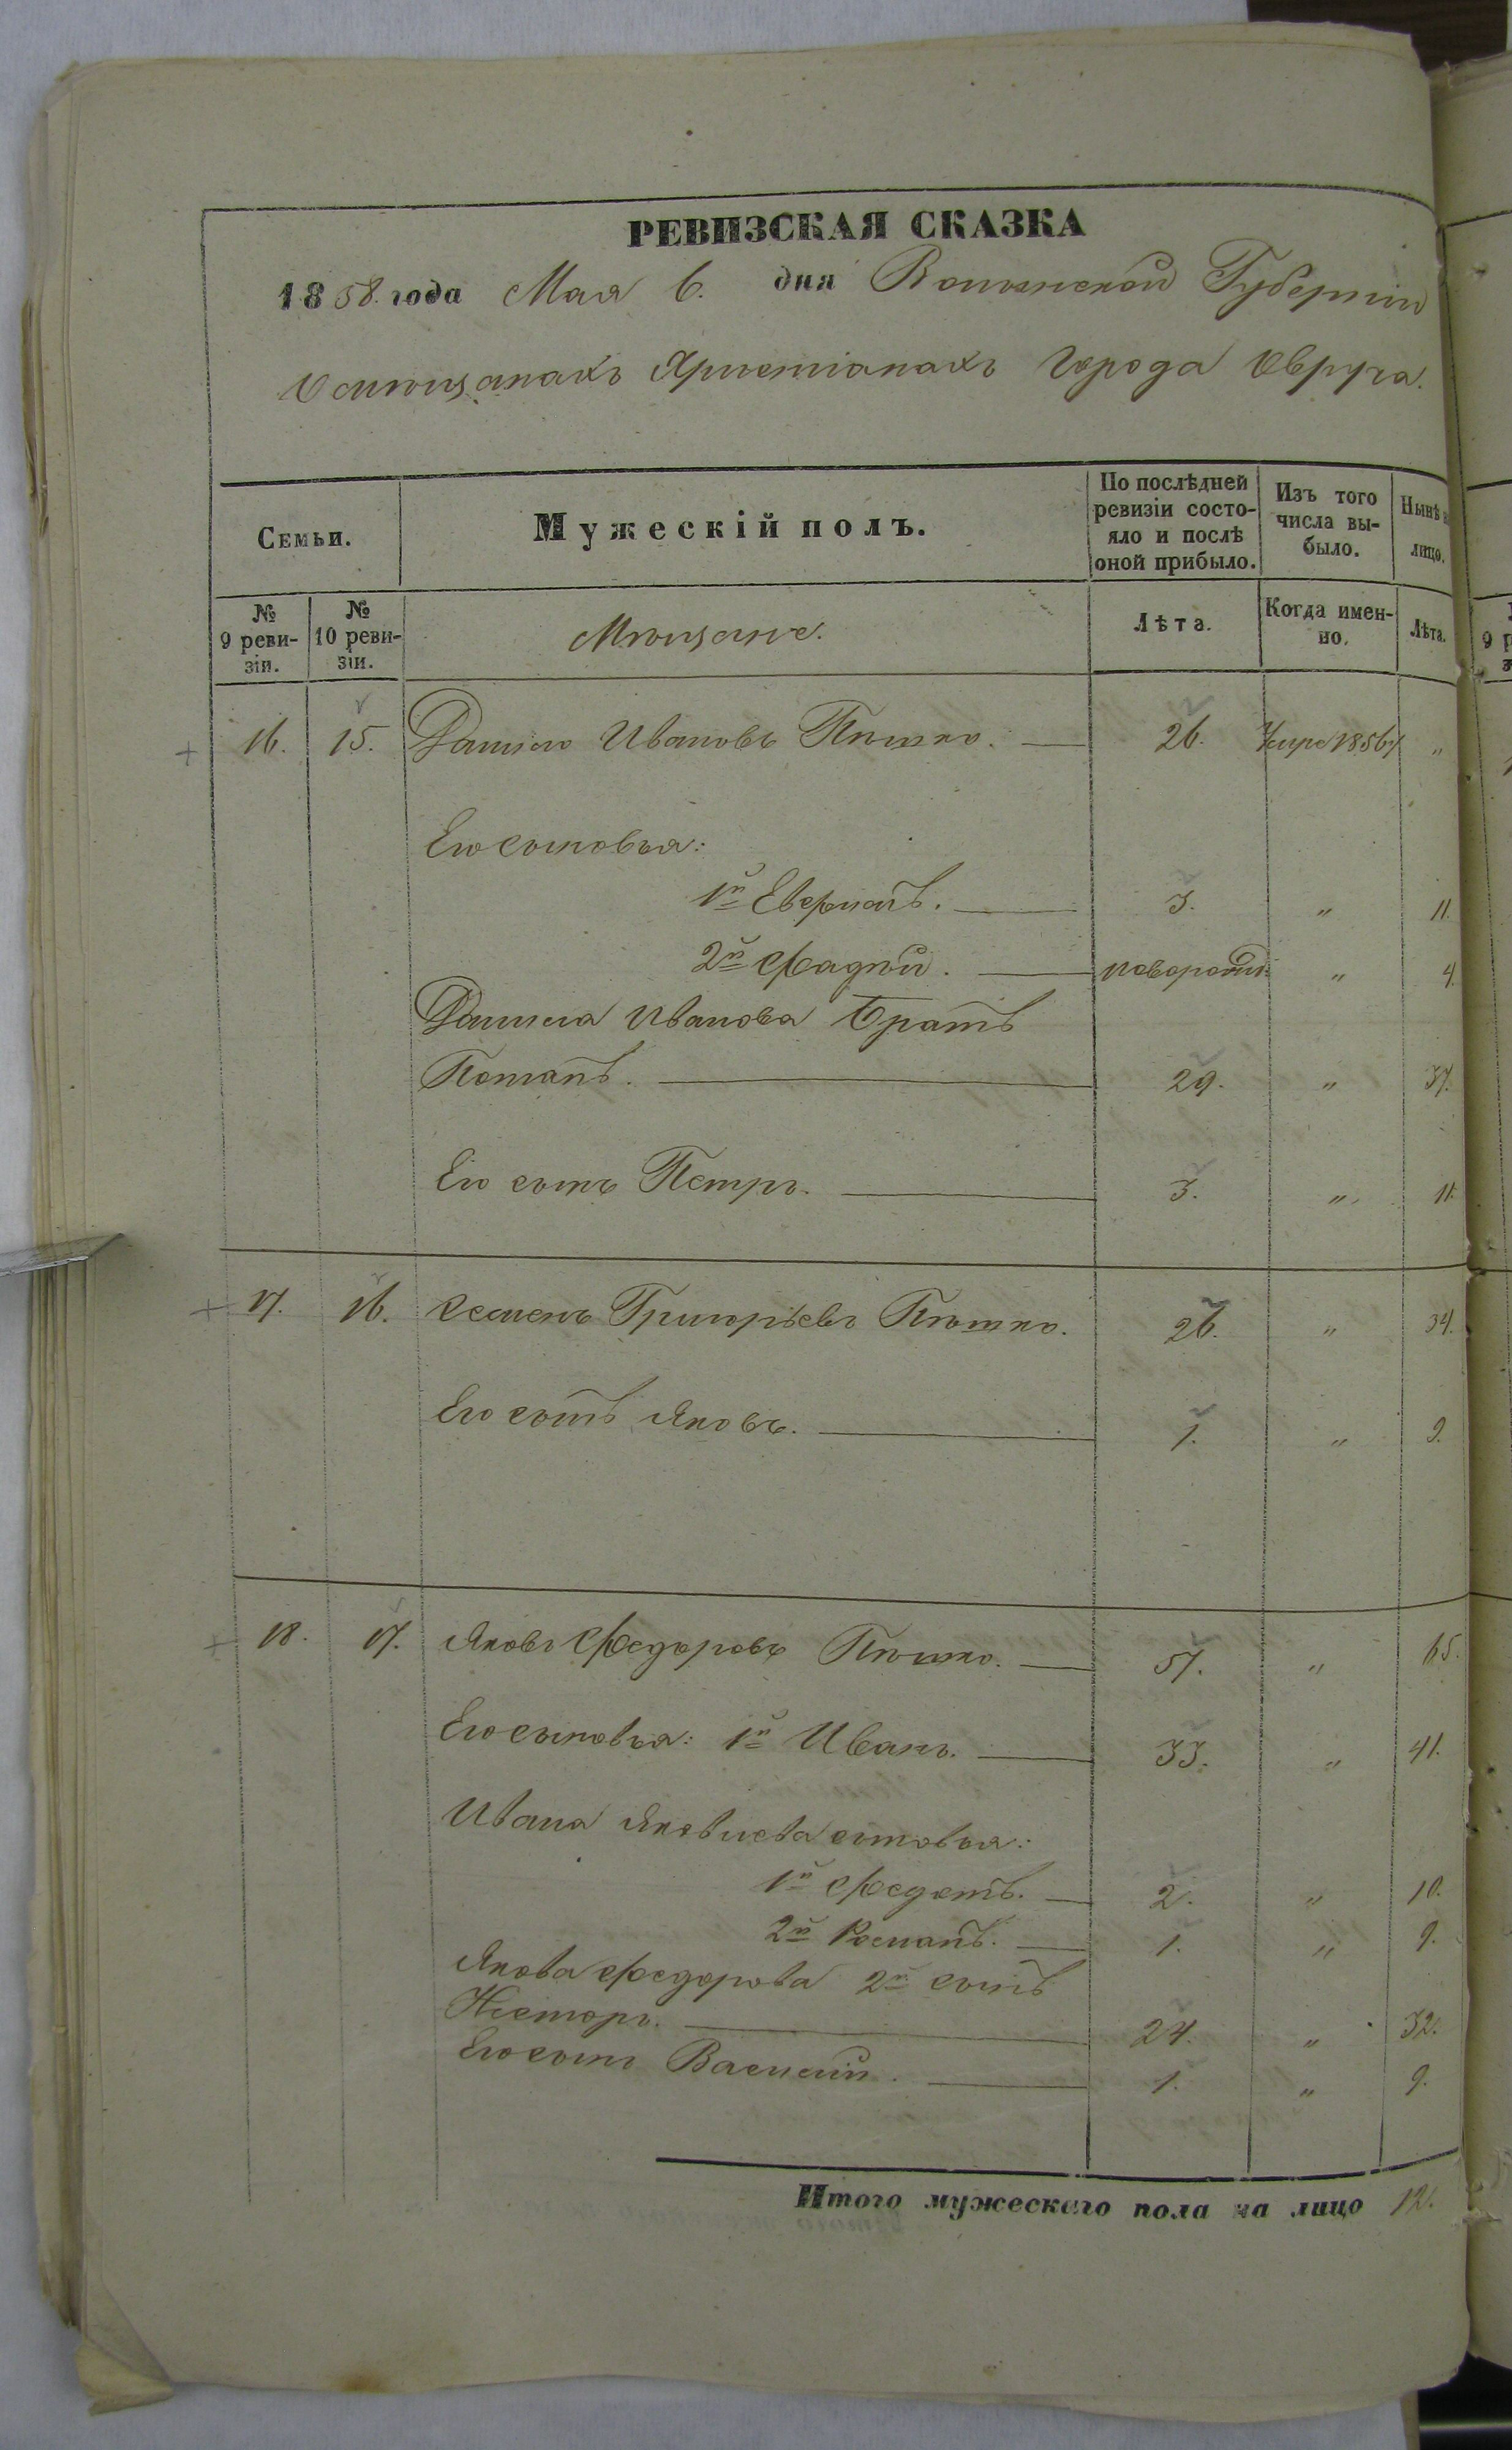 РЕВИЗСКАЯ СКАЗКА
1858. года Мая 6. дня Волынской Губернiи
О мѣщанахъ Христiанахъ города Овруча.
Семьи.
Мужескiй полъ.
По послѣдней ревизiи состояло и послѣ оной прибыло.
Изъ того числа выбыло.
Нынѣ
лицо.
№ 9 ревизiи.
№ 10 ревизiи.
Мѣщане.
Лѣта.
Когда именно.
Лѣта.
16. 15. Данило Ивановъ Пюшко. 26. Умре 1856 "
Его сыновья:
1й Евстратъ. 3. " 11.
2й Фадѣй. новорожд: " 4.
Данила Иванова братъ
Потапъ. 29. " 37.
Его сынъ Петръ. 3. " 11.
17. 16. Семенъ Григорьевъ Пюшко. 26. " 34.
Его сынъ Яковъ. 1. " 9.
18. 17. Яковъ Федоровъ Пюшко. 57. " 65.
Его сыновья: 1й Иванъ. 33. " 41.
Ивана Яковлева сыновья:
1й Федотъ. 2. " 10.
2й Романъ. 1. " 9.
Якова Федорова 2й сынъ
Несторъ. 24. " 32.
Его сынъ Василiй. 1. " 9.
Итого мужескаго пола на лицо 12.